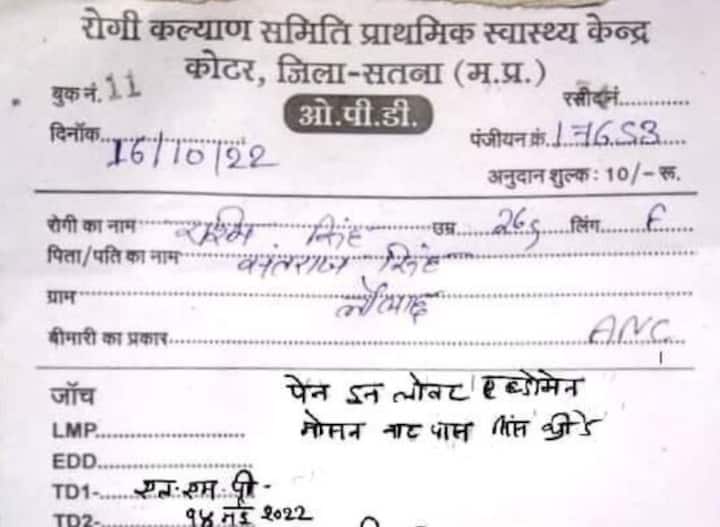 रोगी कल्याण समिति प्राथमिक स्वास्थ्य केन्द्र
कोटर, जिला-सतना (म.प्र.)
बुक नं. 11 रसीद नं.
ओ.पी.डी.
दिनाँक 16/10/22 पंजीयन क्रं. 17653
अनुदान शुल्क: 10/- रू.
रोगी का नाम रश्मि सिंह उम्र 26 लिंग F
पिता/पति का नाम सिंह
ग्राम
बीमारी का प्रकार ANC
जाँच पेन इन लोवर एब्डोमेन
LMP मोसन नाट पास
EDD
TD1- एल.एम.पी -
TD2- १४ मई २०22